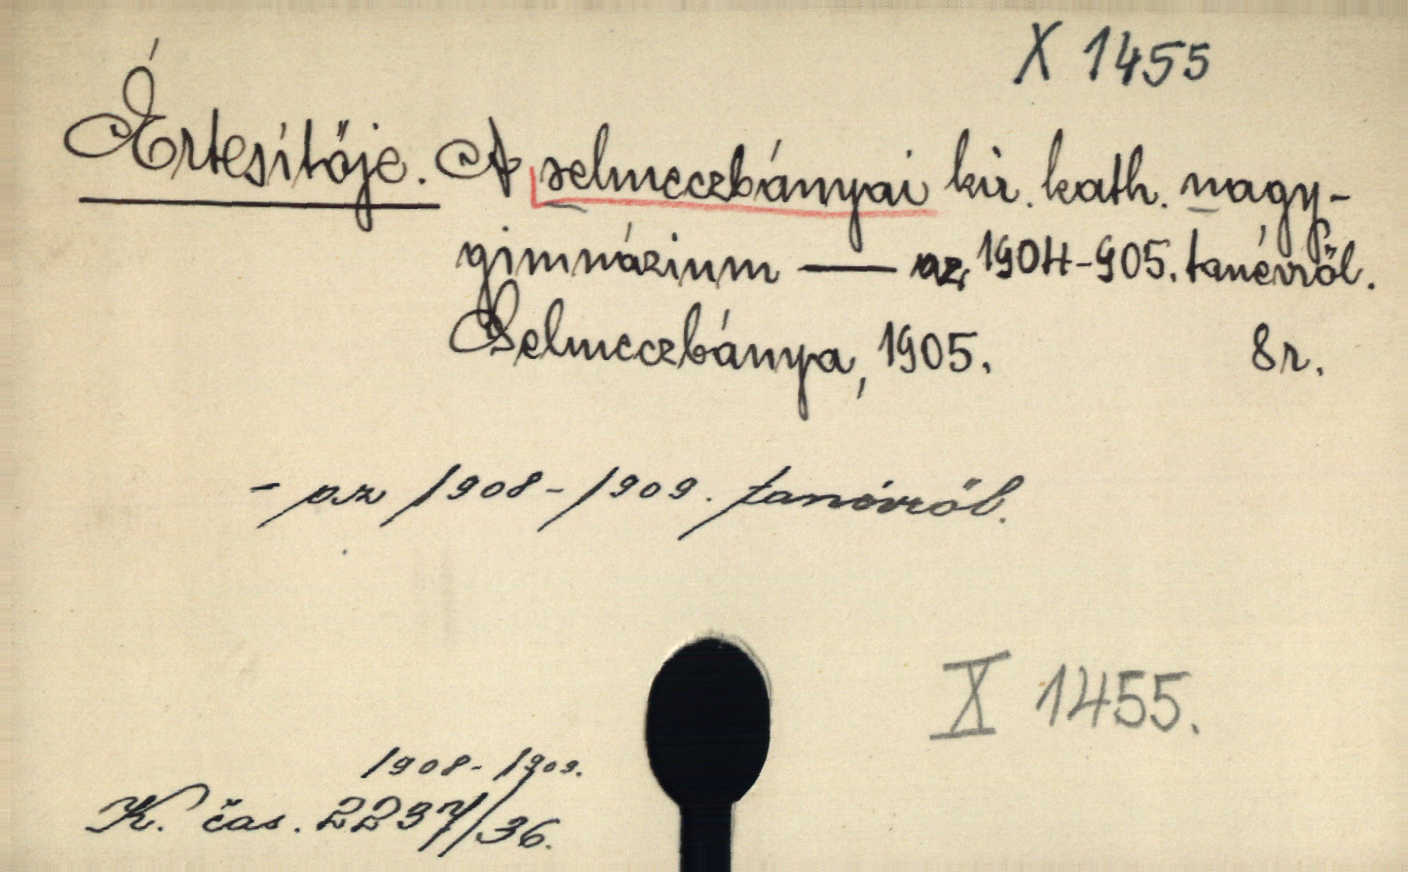 X 1455
Értesítője. A selmeczbányai kir. kath. nagy-
gimnázium — az 1904-905. tanévről.
Selmeczbánya, 1905. 8r.
- az 1908-1909. tanévről.
X 1455.
1908-1909.
K. čas. 2237/36.